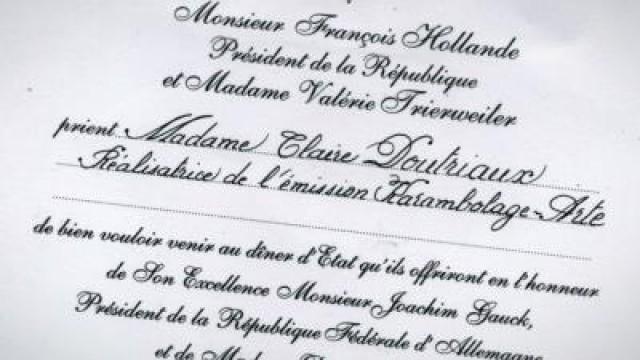 Monsieur François Hollande
Président de la République
et Madame Valérie Trierweiler
prient Madame Claire Doutriaux
Réalisatrice de l'émission Karambolage-Arte
de bien vouloir venir au dîner d'Etat qu'ils offriront en l'honneur
de Son Excellence Monsieur Joachim Gauck,
Président de la République Fédérale d'Allemagne
et de